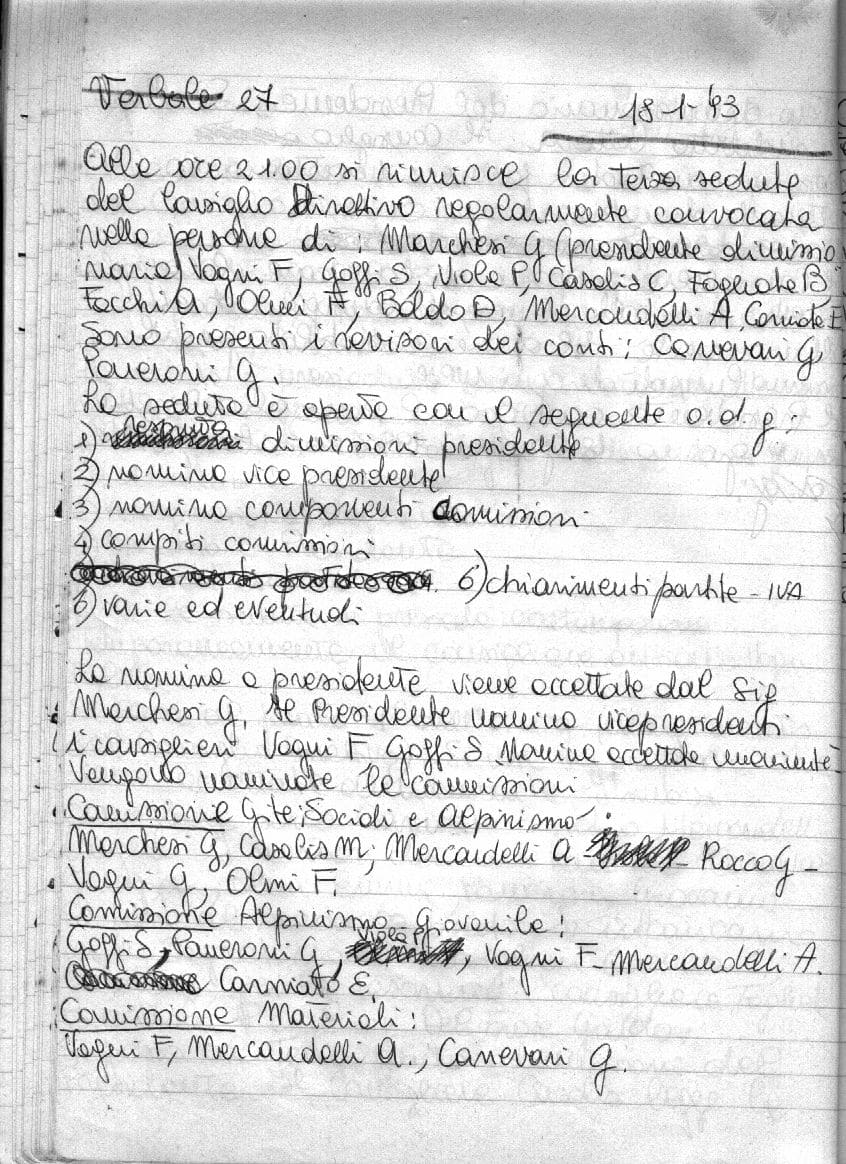 Verbale 27 18-1-'93
Alle ore 21.00 si riunisce la terza seduta
del Consiglio Direttivo regolarmente convocata
nelle persone di: Marchesi G (presidente dimissio
nario) Vagni F, Goffi S, Viola P, Casalis C, Fogliata B,
Facchi A, Olmi F, Boldo D, Mercandelli A, Carniato E
Sono presenti i revisori dei conti: Canevari G,
Paneroni G.
La seduta è aperta con il seguente o.d.g:
1) respinta dimissioni presidente
2) nomina vice presidente
3) nomina componenti comissioni
4) compiti comissioni
6) chiarimenti partite - IVA
6) varie ed eventuali
La nomina a presidente viene accettata dal Sig
Marchesi G, Il Presidente nomina vicepresidenti
i consiglieri Vagni F Goffi S. Nomina accettata
Vengono nominate le commissioni
Comissione Gite Sociali e Alpinismo:
Marchesi G, Casalis M, Mercandelli A - Rocco G -
Vagni G, Olmi F.
Comissione Alpinismo Giovanile:
Goffi S, Paneroni G, Viola P, Vagni F - Mercandelli A.
Carniato E.
Comissione Materiali:
Vagni F, Mercandelli A., Canevari G.